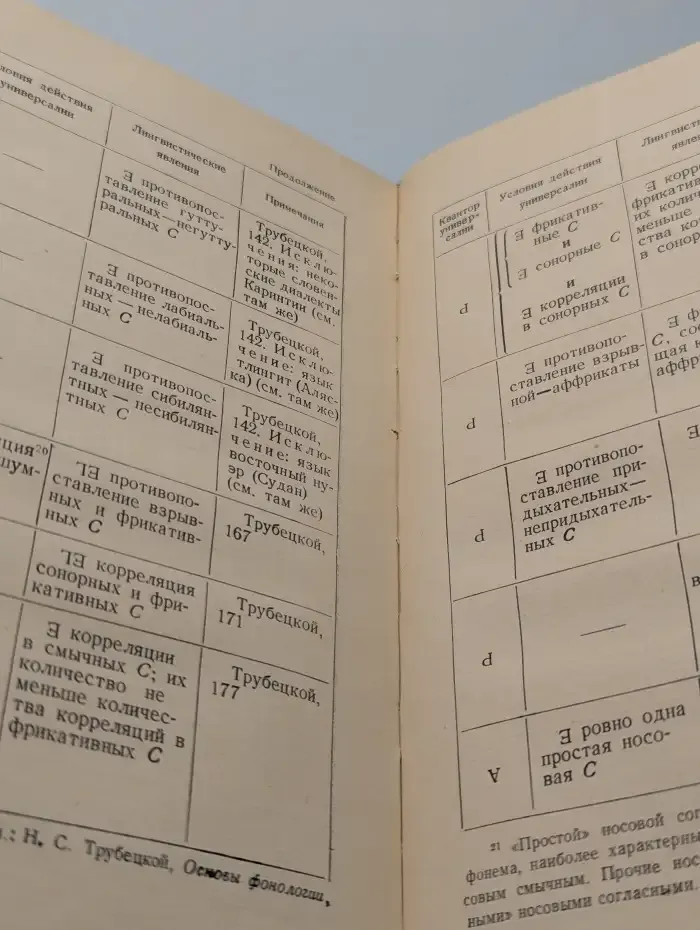 Продолжение
условия действия
универсалии
Лингвистические
явления
Примечания
—
∃ противопос-
тавление гутту-
ральных—негутту-
ральных C
Трубецкой,
142. Исклю-
чения: неко-
торые словен-
ские диалекты
Каринтии (см.
там же)
—
∃ противопос-
тавление лабиаль-
ных — нелабиаль-
ных C
Трубецкой,
142. Исклю-
чение: язык
тлингит (Аляс-
ка) (см. там же)
∃ противопос-
тавление сибилян-
тных — несибилян-
тных C
Трубецкой,
142. Исклю-
чение: язык
восточный ну-
эр (Судан)
(см. там же)
ция²⁰
шум-
∃Ł противопо-
ставление взрыв-
ных и фрикатив-
ных C
Трубецкой,
167
∃Ł корреляция
сонорных и фри-
кативных C
Трубецкой,
171
∃ корреляции
в смычных C; их
количество не
меньше количес-
тва корреляций в
фрикативных C
Трубецкой,
177
Н. С. Трубецкой, Основы фонологии,
Квантор
универ-
салии
Условия действия
универсалии
Лингвист
явлен
P
∃ фрикатив-
ные C
и
∃ сонорные C
и
∃ корреляции
в сонорных C
∃ корре
фрикатив
их колич
меньше
ства ко
в сонор
P
∃ противопо-
ставление взрыв-
ной—аффрикаты
∃ ф
C, со
щая к
аффр
P
∃ противопо-
ставление при-
дыхательных—
непридыхатель-
ных C
∃
P
—
в
A
∃ ровно одна
простая носо-
вая C
²¹ «Простой» носовой сог
фонема, наиболее характерны
совым смычным. Прочие нос
ными» носовыми согласными.